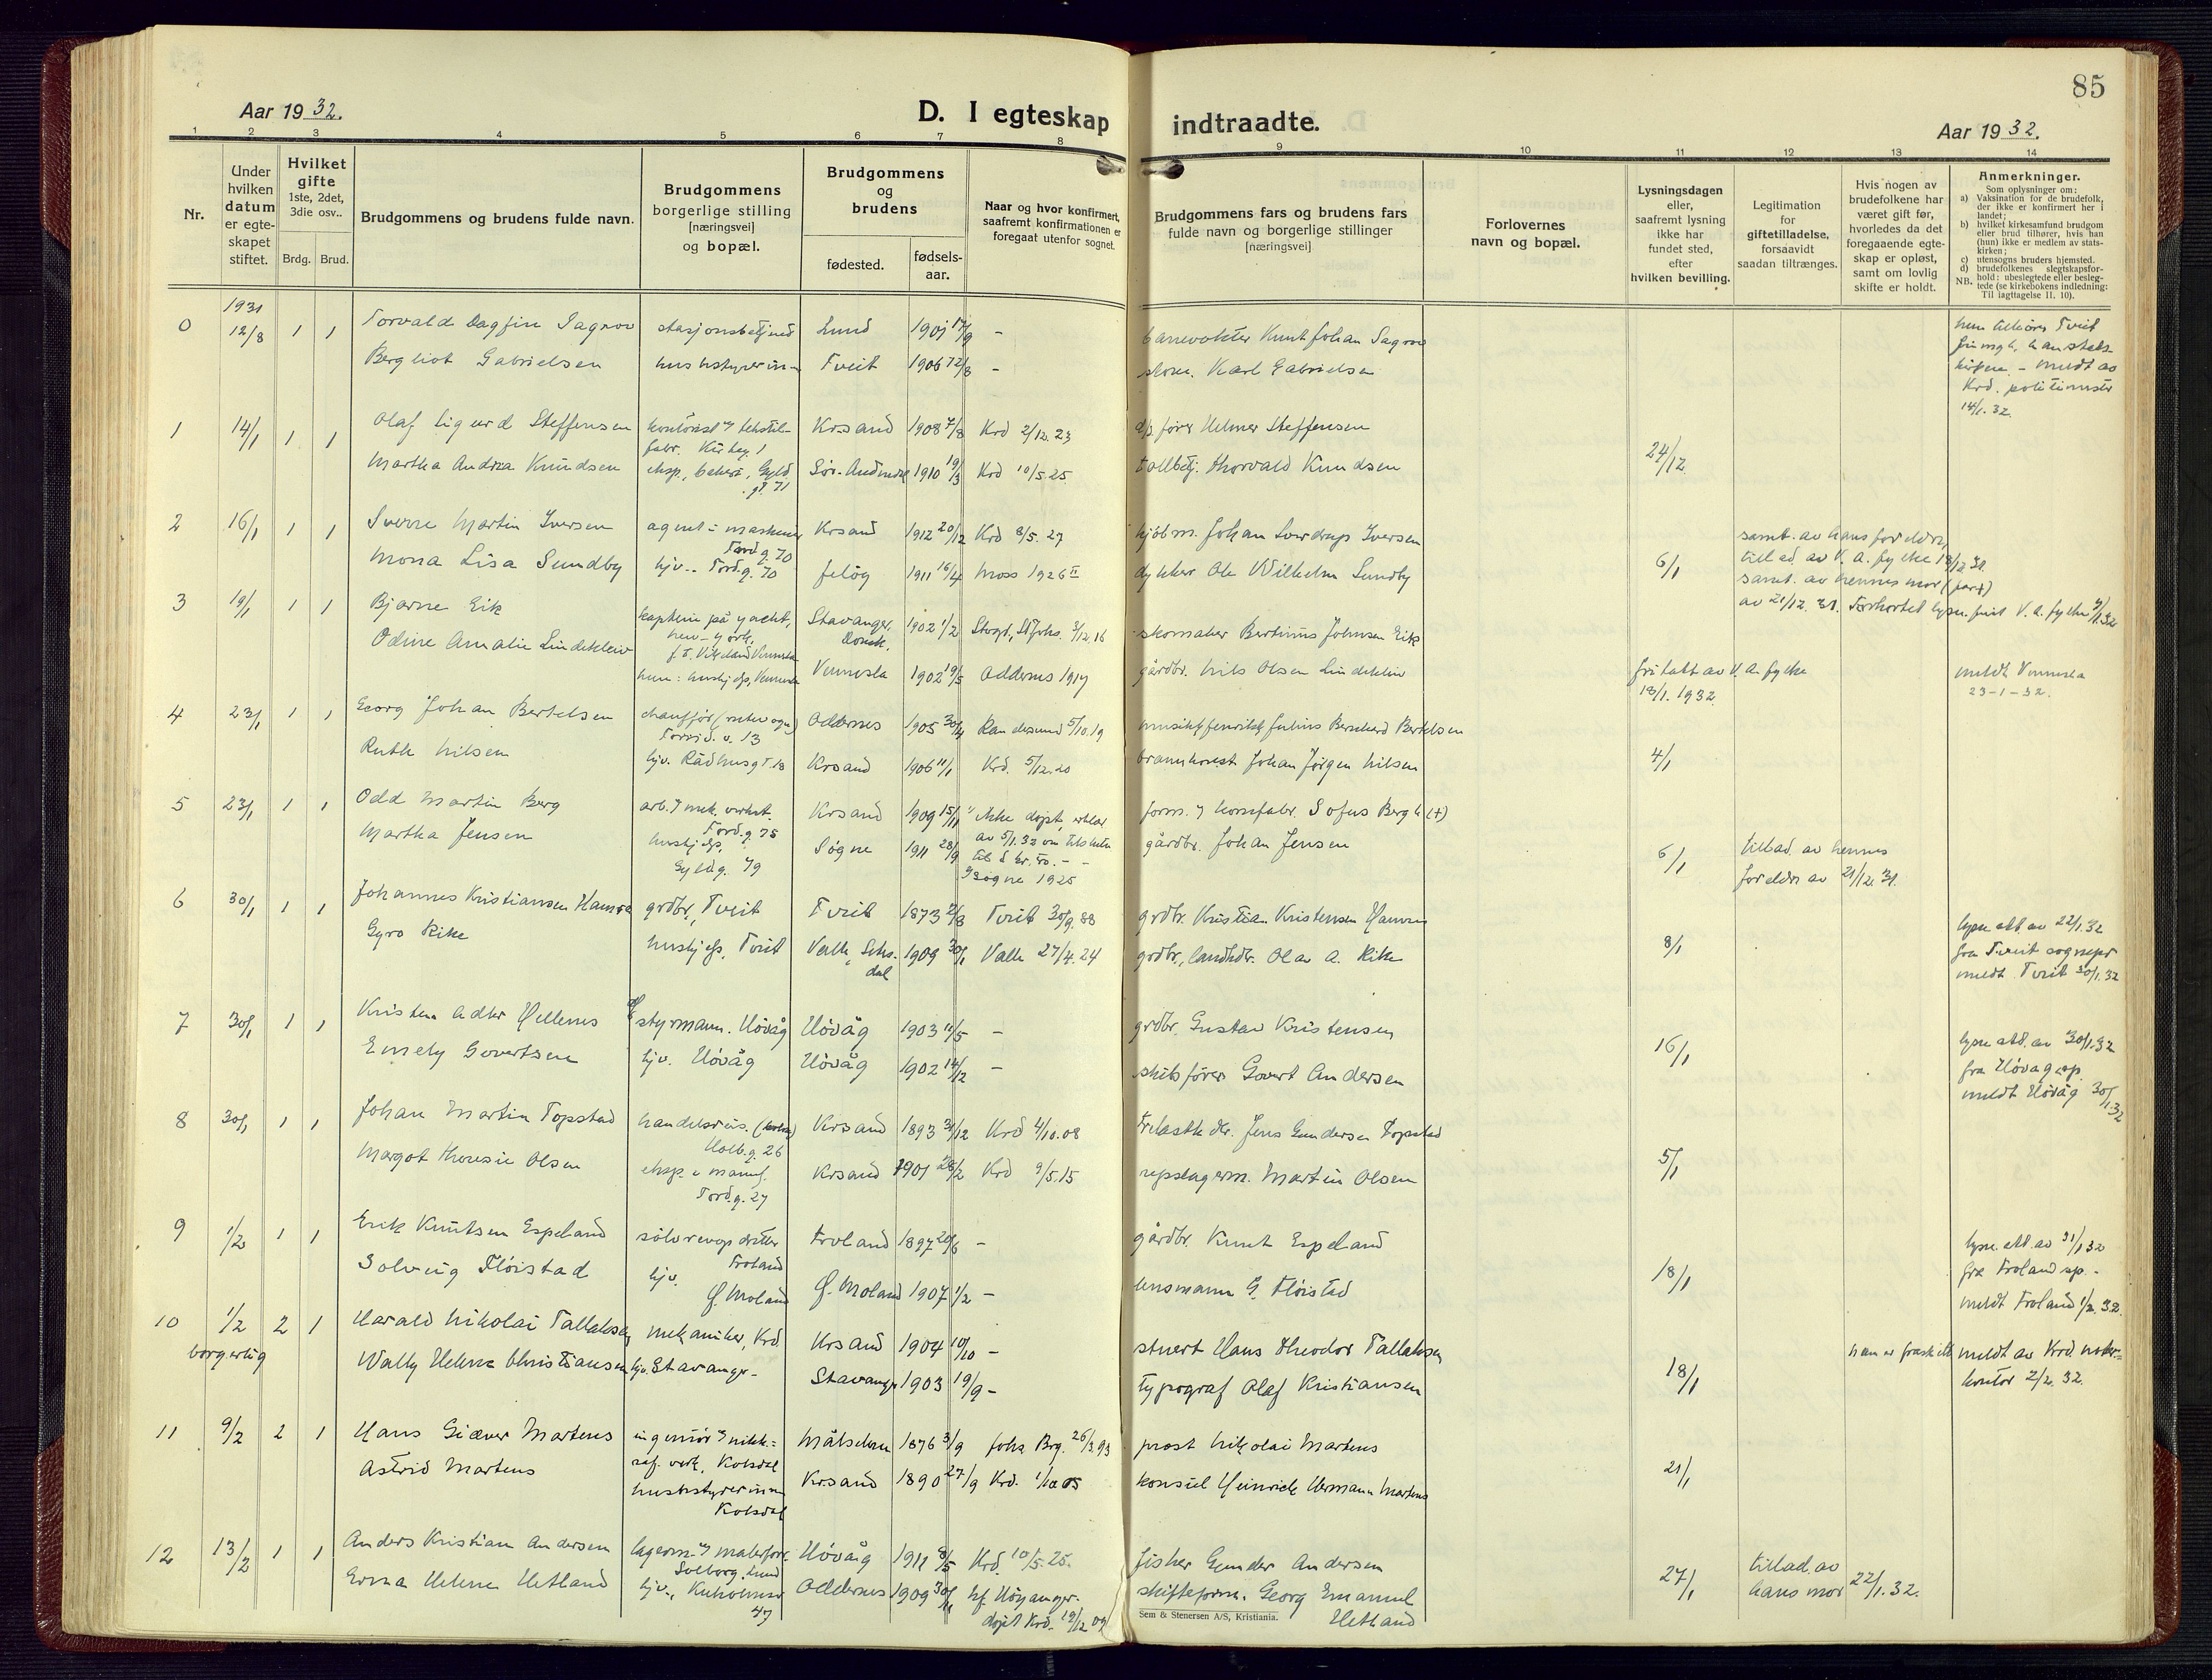 85
Aar 1932.
D. I egteskap indtraadte.
Aar 1932.
1 2 3 4 5 6 7 8 9 10 11 12 13 14
Nr.
Under
hvilken
datum
er egte-
skapet
stiftet.
Hvilket
gifte
1ste, 2det,
3die osv..
Brdg. Brud.
Brudgommens og brudens fulde navn.
Brudgommens
borgerlige stilling
[næringsvei]
og bopæl.
Brudgommens
og
brudens
fødested.
fødsels-
aar.
Naar og hvor konfirmert,
saafremt konfirmationen er
foregaat utenfor sognet.
Brudgommens fars og brudens fars
fulde navn og borgerlige stillinger
[næringsvei]
Forlovernes
navn og bopæl.
Lysningsdagen
eller,
saafremt lysning
ikke har
fundet sted,
efter
hvilken bevilling.
Legitimation
for
giftetilladelse,
forsaavidt
saadan tiltrænges.
Hvis nogen av
brudefolkene har
været gift før,
hvorledes da det
foregaaende egte-
skap er opløst,
samt om lovlig
skifte er holdt.
Anmerkninger.
Som oplysninger om:
a) Vaksination for de brudefolk,
der ikke er konfirmert her i
landet;
b) hvilket kirkesamfund brudgom
eller brud tilhører, hvis han
(hun) ikke er medlem av stats-
kirken;
c) utensogns bruders hjemsted.
d) brudefolkenes slegtskapsfor-
hold: ubeslegtede eller besleg-
NB. tede (se kirkebokens indledning:
Til iagttagelse II. 10).
1931
0 12/8 1 1 Torvald Dagfin Sagrov stasjonsbetjent Lund 1901 17/9 - banevokter Knut Johan Sagrov
Bergliot Gabrielsen husbstyrerinne Tveit 1906 - Karl Gabrielsen
hun tilhører Tveit
frimgh, han stats-
kirken - meldt av
Krd. politimster
14/1. 32.
1 14/1 1 1 Olaf Sigurd Steffensen Krsand 1908 7/8 Krd 2/12. 23 fører Helmer Steffensen 24/12
Martha Andrea Knudsen Sør-Audnedal 1910 19/3 Krd 10/5. 25. tollbetj. Thorvald Knudsen
2 16/1 1 1 Sverre Martin Iversen agent i maskiner Krsand 1912 20/12 Krd 8/5. 27 kjøbm. Johan Sverdrup Iversen
Tord.g. 70
Mona Lisa Sundby hjv. Tord.g. 70 Jeløy 1911 16/4 Moss 1926 II dykker Ole Wilhelm Sundby 6/1
samt. av hans foreldre,
tillad. av V. A. fylke 18/12 31.
samt. av hennes mor
av 21/12. 31.
3 19/1 1 1 Bjarne Eik kaptein på yacht, Stavanger, 1902 1/2 skomaker Bertinius Johnsen Eik
New-York, Domk.
Odine Amalie Lindekleiv Vennesla 1902 19/5 Oddernes 1917 gårdbr. Nils Olsen Lindekleiv
fritatt av V. A. fylke
18/1. 1932.
meldt Vennesla
23-1-32.
4 23/1 1 1 Georg Johan Bertelsen chauffør Oddernes 1905 30/4 Randesund 5/10. 19 Julius Bernhard Bertelsen
Ruth Nilsen hjv. Rådhusgt. 18 Krsand 1906 11/1 Krd. 5/12. 20 Johan Jørgen Nilsen 4/1
5 23/1 1 1 Odd Martin Berg arb. mek. verkst. Krsand 1909 15/11 ikke døpt, form. Sofus Bergh (+)
Tord.g. 75 av 5/1.32
Martha Jensen hushj. Søgne 1911 28/9 gårdbr. Johan Jensen 6/1
Gyld.g. 79 Søgne 1925
tillad. av hennes
foreldre av 21/12 31.
6 30/1 1 1 Johannes Kristiansen Hamre grdbr. Tveit Tveit 1873 Tveit 30/9. 88 grdbr. Kristian Kristensen Hamre
Gyro Rike hushj, Tveit Valle, Setes- 1909 30/1 Valle 27/4. 24 grdbr., landhdr. Olav A. Rike 8/1
dal
lysn. att. av 22/1. 32
fra Tveit sognepr
meldt Tveit 30/1. 32
7 30/1 1 1 Kristen Adler Hellenes styrmann. Høvåg Høvåg 1903 11/5 - grdbr. Gustav Kristensen
Emely Govertsen hjv. Høvåg Høvåg 1902 14/2 - skibsfører Govert Andersen 16/1
lysn. att. av 30/1. 32
fra Høvåg sp.
meldt Høvåg 30/1.32
8 30/1 1 1 Johan Martin Topstad handelsreis. Krsand 1893 31/12 Krd 4/10. 08 trelasthdlr. Jens Gundersen Topstad
Holb.g. 26
Margot Theresie Olsen eksp. i manuf. Krsand 1901 Krd 9/5. 15 repslagerm. Martin Olsen 5/1
Tord.g. 27
9 1/2 1 1 Erik Knutsen Espeland sølvrevopdretter Froland 1897 20/6 - gårdbr. Knut Espeland
Froland
Solveig Fløistad hjv. Ø. Moland Ø. Moland 1907 1/2 - lensmann G. Fløistad 18/1
lysn. att. av 31/1 32
fra Froland sp. -
meldt Froland 1/2. 32.
10 1/2 2 1 Harald Nikolai Tallaksen mekaniker, Krd. Krsand 1904 10/10 - stuert Hans Theodor Tallaksen
borgerlig Wally Helene Christiansen hjv. Stavanger Stavanger 1903 19/9 - typograf Olaf Kristiansen 18/1
han er fraskilt
meldt av Krd notar.-
kontor 2/2. 32.
11 9/2 2 1 Hans Giæver Martens ingeniør nikk.- Målselven 1876 3/9 Johs Brg. 26/3.93 prost Nikolai Martens
raf. verk, Kolsdal
Astrid Martens husbstyrerinne Krsand 1890 27/9 Krd. 1/10 05 konsul Heinrich Hermann Martens 21/1
Kolsdal
12 13/2 1 1 Anders Kristian Andersen Høvåg 1911 8/5 Krd. 10/5. 25. fisker Gunder Andersen
Solborg, Lund
Erna Helene Hetland hjv., Kuholmsv Oddernes 1909 30/11 kf. Høyanger. skifteform. Georg Emanuel 27/1
47 døpt Krd. 19/12 09 Hetland
tillad. av
hans mor 22/1. 32.
Sem & Stenersen A/S, Kristiania.